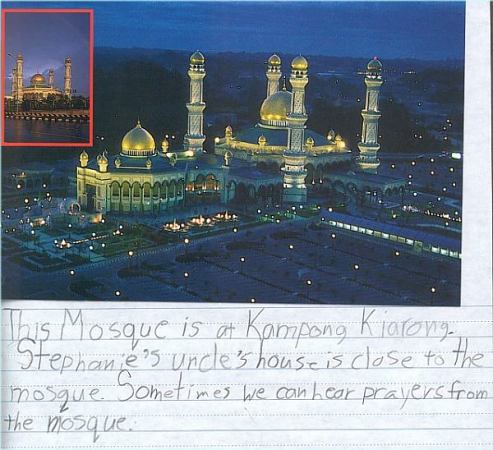 This Mosque is at Kampong Kiarong.
Stephanie's uncle's house is close to the
mosque. Sometimes we can hear prayers from
the mosque.